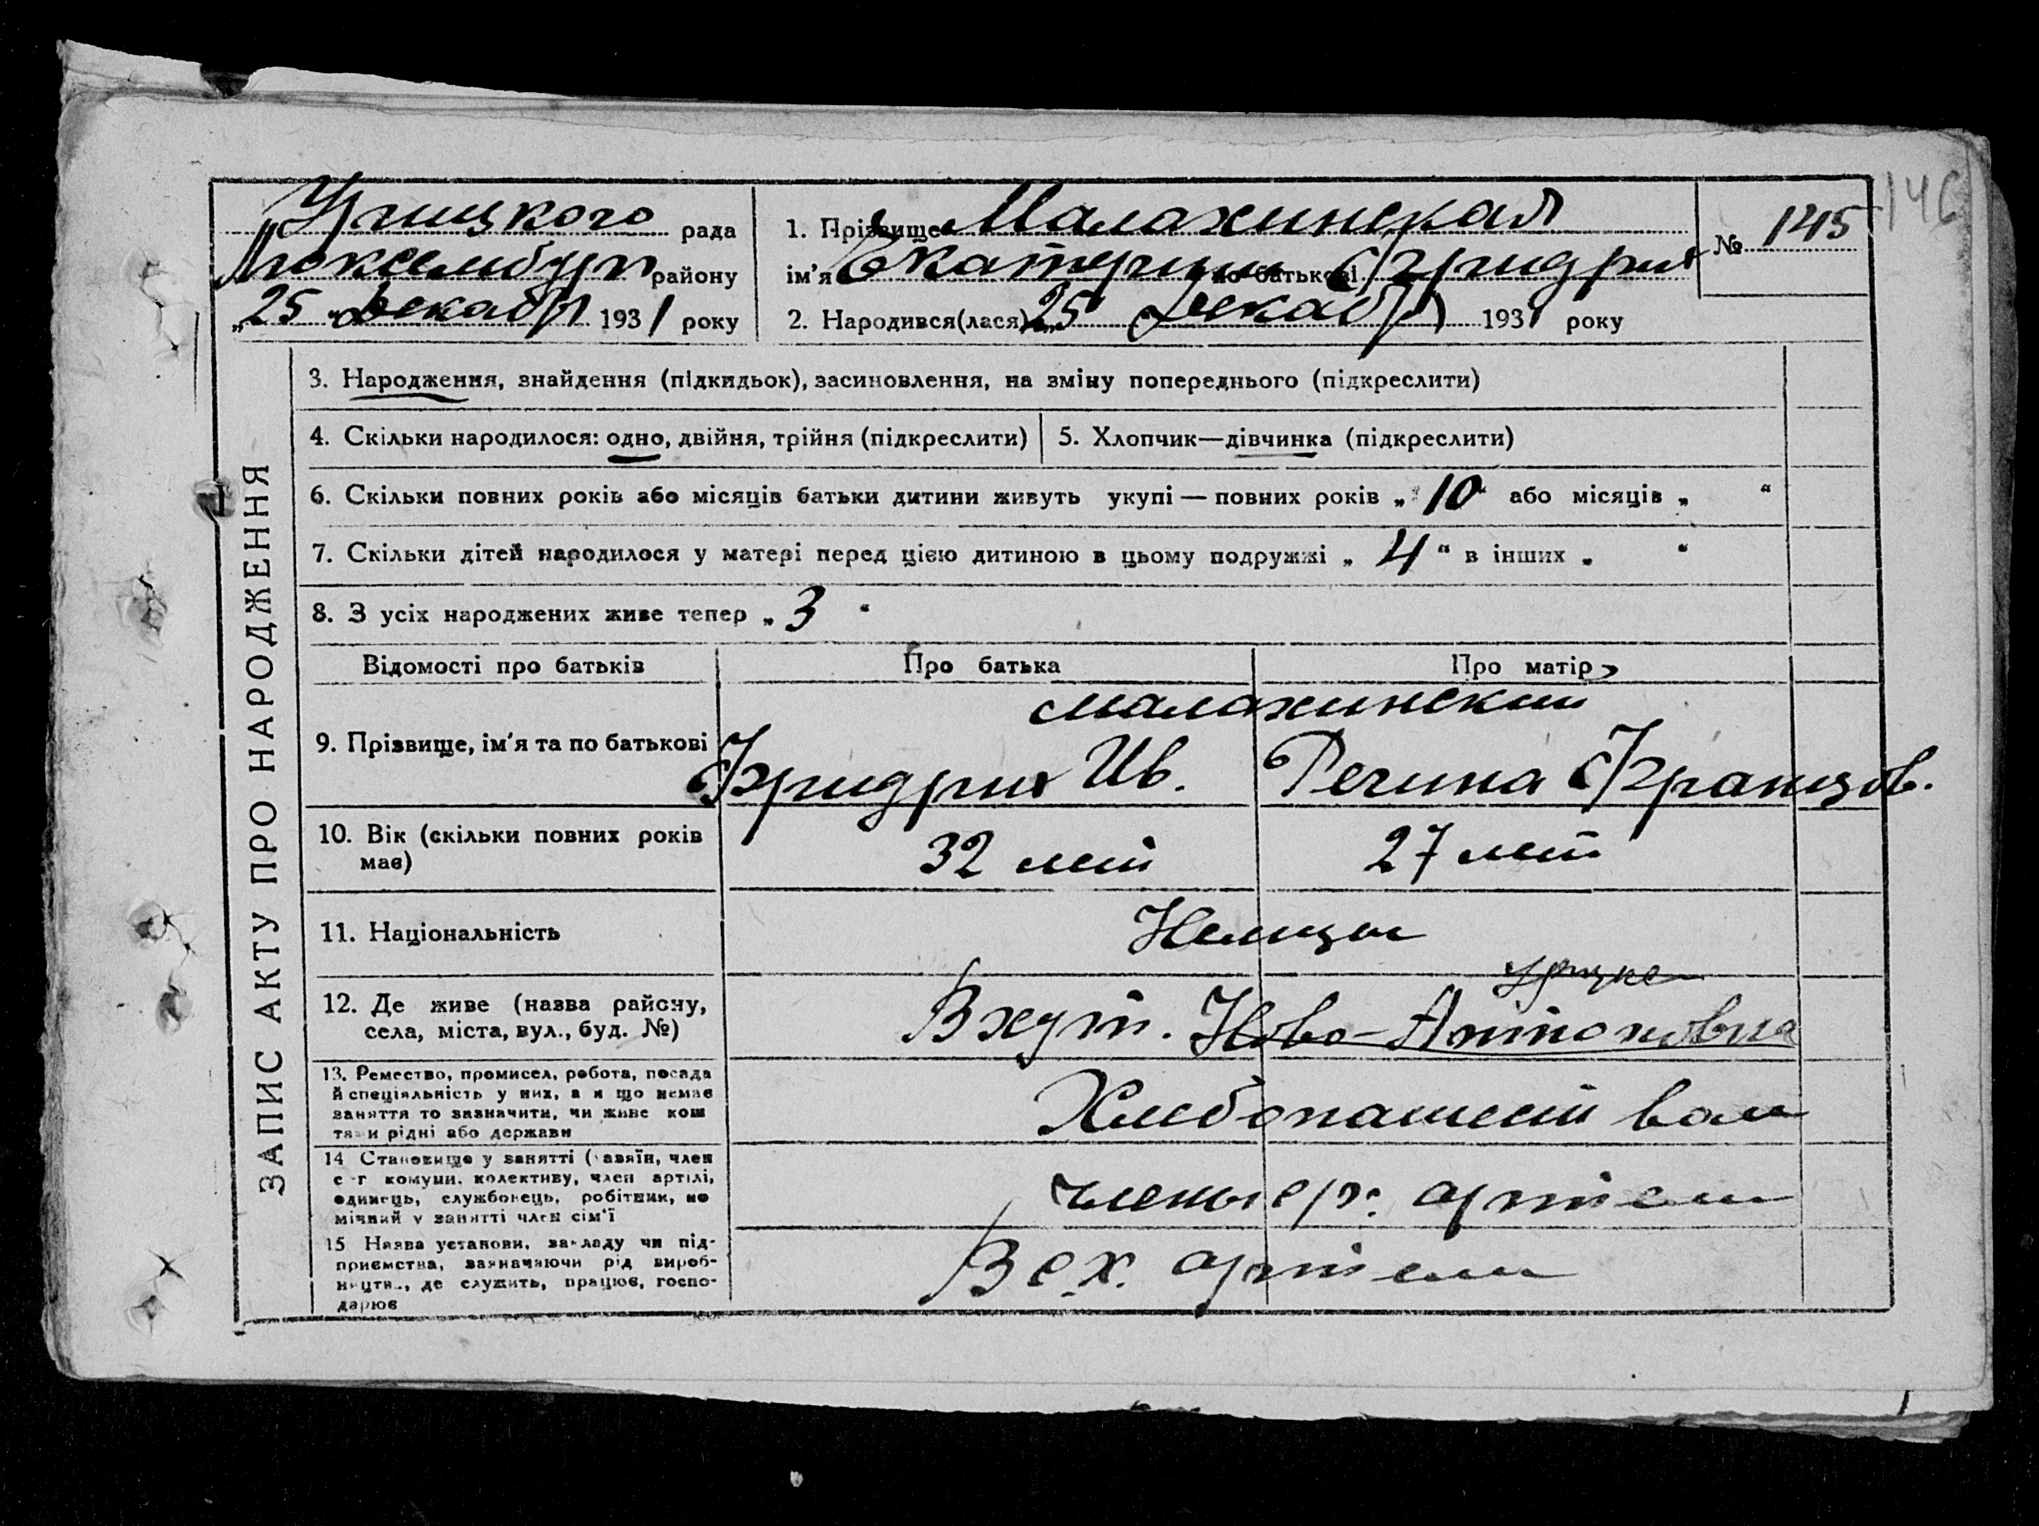 Урицкого рада
Люксембург району
„25" Декабр 1931 року
1. Прізвище Малахинская
ім'я Екатерина по батькові Фридрих
2. Народився(лася) 25 Декабр 1931 року
№ 145
146
ЗАПИС АКТУ ПРО НАРОДЖЕННЯ
3. Народження, знайдення (підкидьок), засиновлення, на зміну попереднього (підкреслити)
4. Скільки народилося: одно, двійня, трійня (підкреслити)
5. Хлопчик—дівчинка (підкреслити)
6. Скільки повних років або місяців батьки дитини живуть укупі — повних років „10" або місяців „ "
7. Скільки дітей народилося у матері перед цією дитиною в цьому подружжі „4" в інших „ "
8. З усіх народжених живе тепер „3"
Відомості про батьків Про батька Про матір
Малахинские
9. Прізвище, ім'я та по батькові Фридрих Ив. Регина Францов.
10. Вік (скільки повних років 32 лет 27 лет
має)
11. Національність Немцы
12. Де живе (назва району, В хут. Ново-Антоновка
села, міста, вул., буд. №)
13. Ремество, промисел, робота, посада
й спеціяльність у них, а я що немає
заняття то зазначити, чи живе кош
тами рідні або держави
Хлебопашеств
14 Становище у занятті (хазяїн, член
с-г комуни, колективу, член артілі,
одинець, службовець, робітник, по
мічний у занятті член сім'ї
члены с/х. артели
15 Назва установи, закладу чи під-
приємства, зазначаючи рід вироб-
ництва, де служить, працює, госпо-
дарює
В с.х. артели